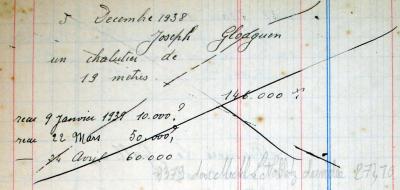 5 Decembre 1938
Joseph Gloaguen
un chalutier de
19 mètres.
146.000
recu 9 Janvier 1939 10.000
recu 22 Mars 50.000
Avril 60.000